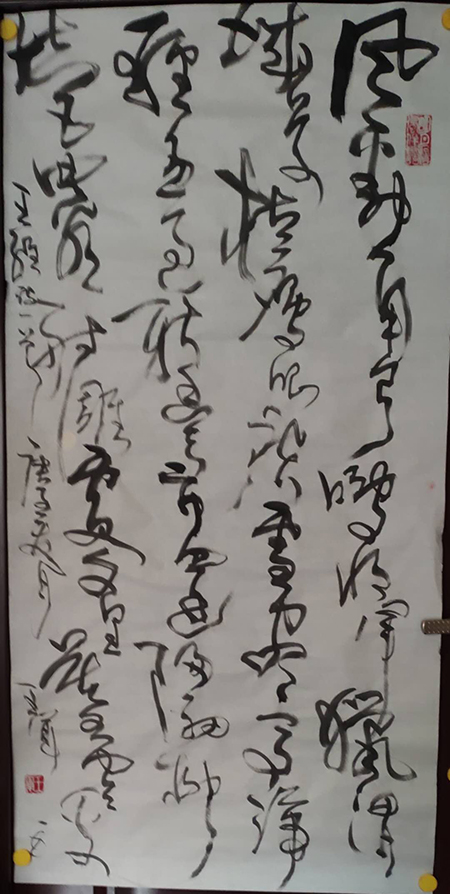 风勁角弓鳴将軍獵渭
城草枯鷹眼疾雪尽馬蹄
輕忽過新豐市還歸細柳
營回看射雕處千里暮雲平
王維詩一首 庚子